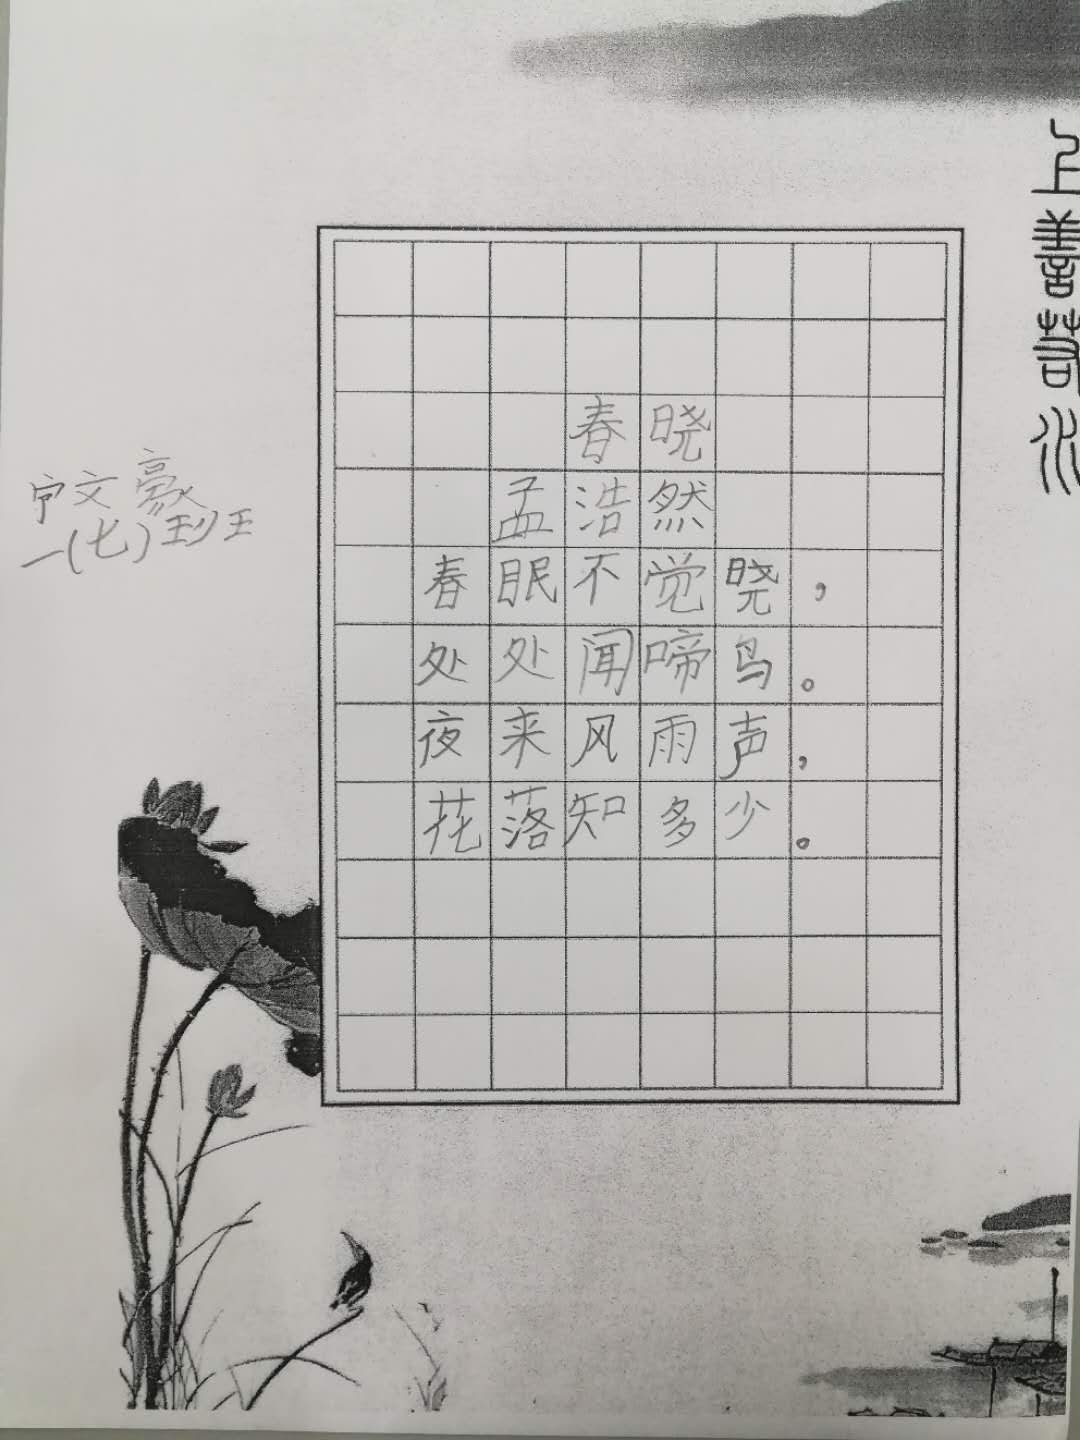 春晓
孟浩然
春眠不觉晓，
处处闻啼鸟。
夜来风雨声，
花落知多少。
宁文豪
一(七)班
上善若水